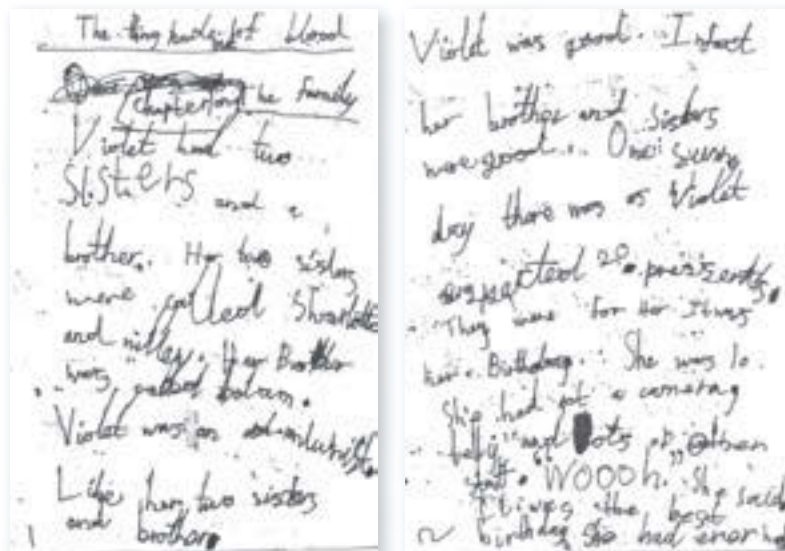 The thing made of blood
Chapter one The family
Violet had two
sisters and a
brother. Her two sisters
were called Sharlotte
and milley. Her Brother
was called
Violet was an
Like her two sisters
and brother
1
Violet was good. Infact
her brother and sisters
were good. One sunny
day there was as Violet
suspected 20 pressents.
They were for Her It was
her Birthday. She was 10.
She had got a camera
telly and lots of other
stuff. "WOOOh." She said
It was the best
birthday She had ever had
2